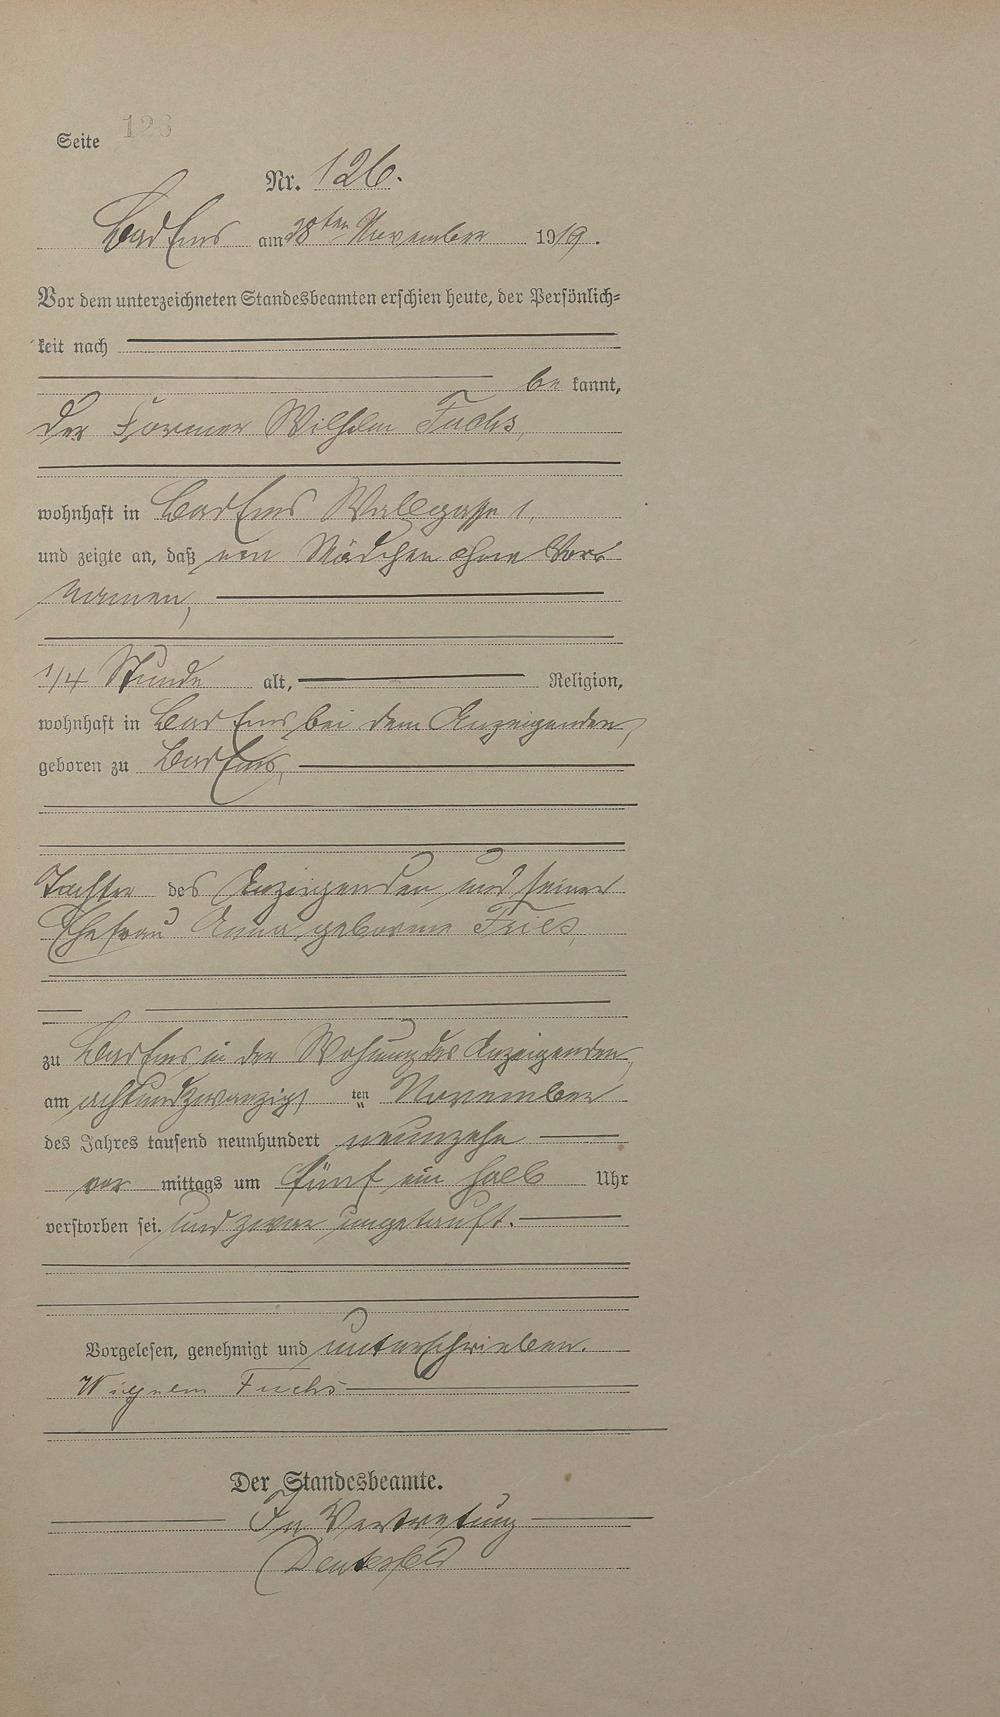 Seite 126
Nr. 126.
Bad Ems am 28ten November 1919.
Vor dem unterzeichneten Standesbeamten erschien heute, der Persönlich=
keit nach
be kannt,
der Former Wilhelm Fuchs,
wohnhaft in Bad Ems Wallgasse 1,
und zeigte an, daß ein Mädchen ohne Vor=
namen,
1/4 Stunde alt, Religion,
wohnhaft in Bad Ems bei dem Anzeigenden,
geboren zu Bad Ems,
Tochter des Anzeigenden und seiner
Ehefrau Anna geborene Fries,
zu Bad Ems in der Wohnung des Anzeigenden,
am achtundzwanzigs ten November
des Jahres tausend neunhundert neunzehn
vor mittags um fünf ein halb Uhr
verstorben sei. und zwar ungetauft.
Vorgelesen, genehmigt und unterschrieben.
Wilhelm Fuchs
Der Standesbeamte.
In Vertretung